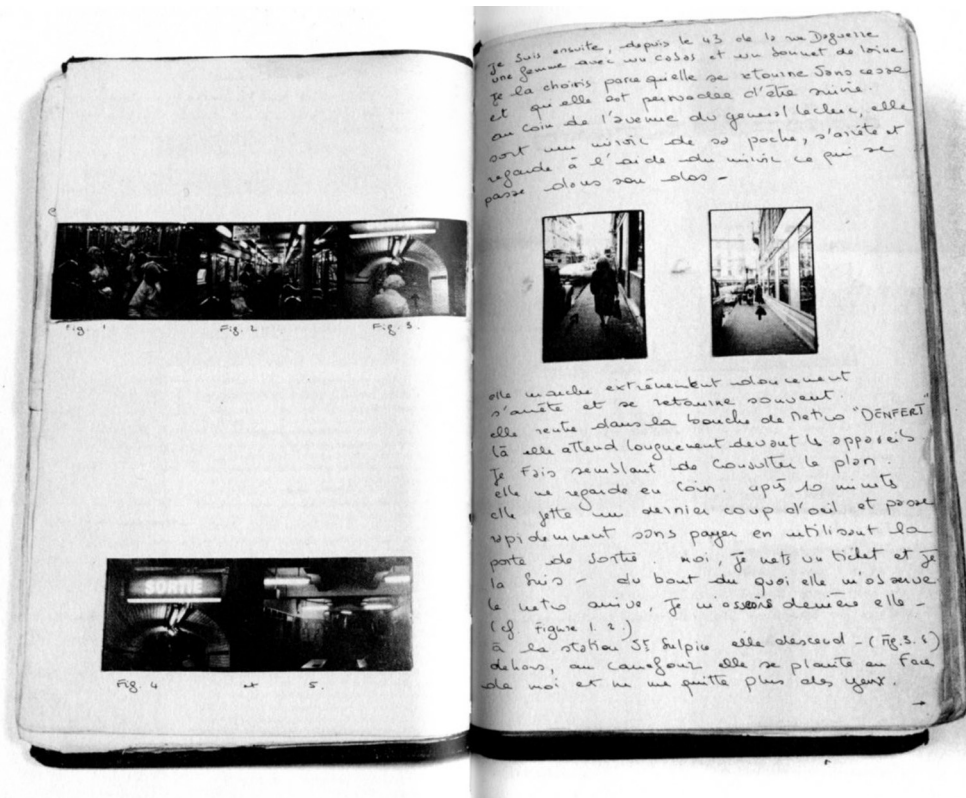 Fig. 1
Fig. 2
Fig. 3.
SORTIE
Fig. 4 et 5.
Je suis ensuite, depuis le 43 de la rue Daguerre
une femme avec un cabas et un bonnet de laine
Je la choisis parce qu'elle se retourne sans cesse
et qu'elle est persuadée d'être suivie.
au coin de l'avenue du general Leclerc, elle
sort un miroir de sa poche, s'arrête et
regarde à l'aide du miroir ce qui se
passe dans son dos -
elle marche extrêmement doucement
s'arrête et se retourne souvent.
elle rentre dans la bouche de Metro "DENFERT"
là elle attend longuement devant les appareils
Je fais semblant de consulter le plan.
elle me regarde en coin. après 10 minutes
elle jette un dernier coup d'oeil et passe
rapidement sans payer en utilisant la
porte de sortie. moi, je mets un ticket et je
la suis - du bout du quai elle m'observe
le metro arrive, Je m'assois derrière elle -
(cf Figure 1. 2.)
à la station St Sulpice elle descend - (Fig. 3.
dehors, au carrefour elle se plante en face
de moi et ne me quitte plus des yeux.
→